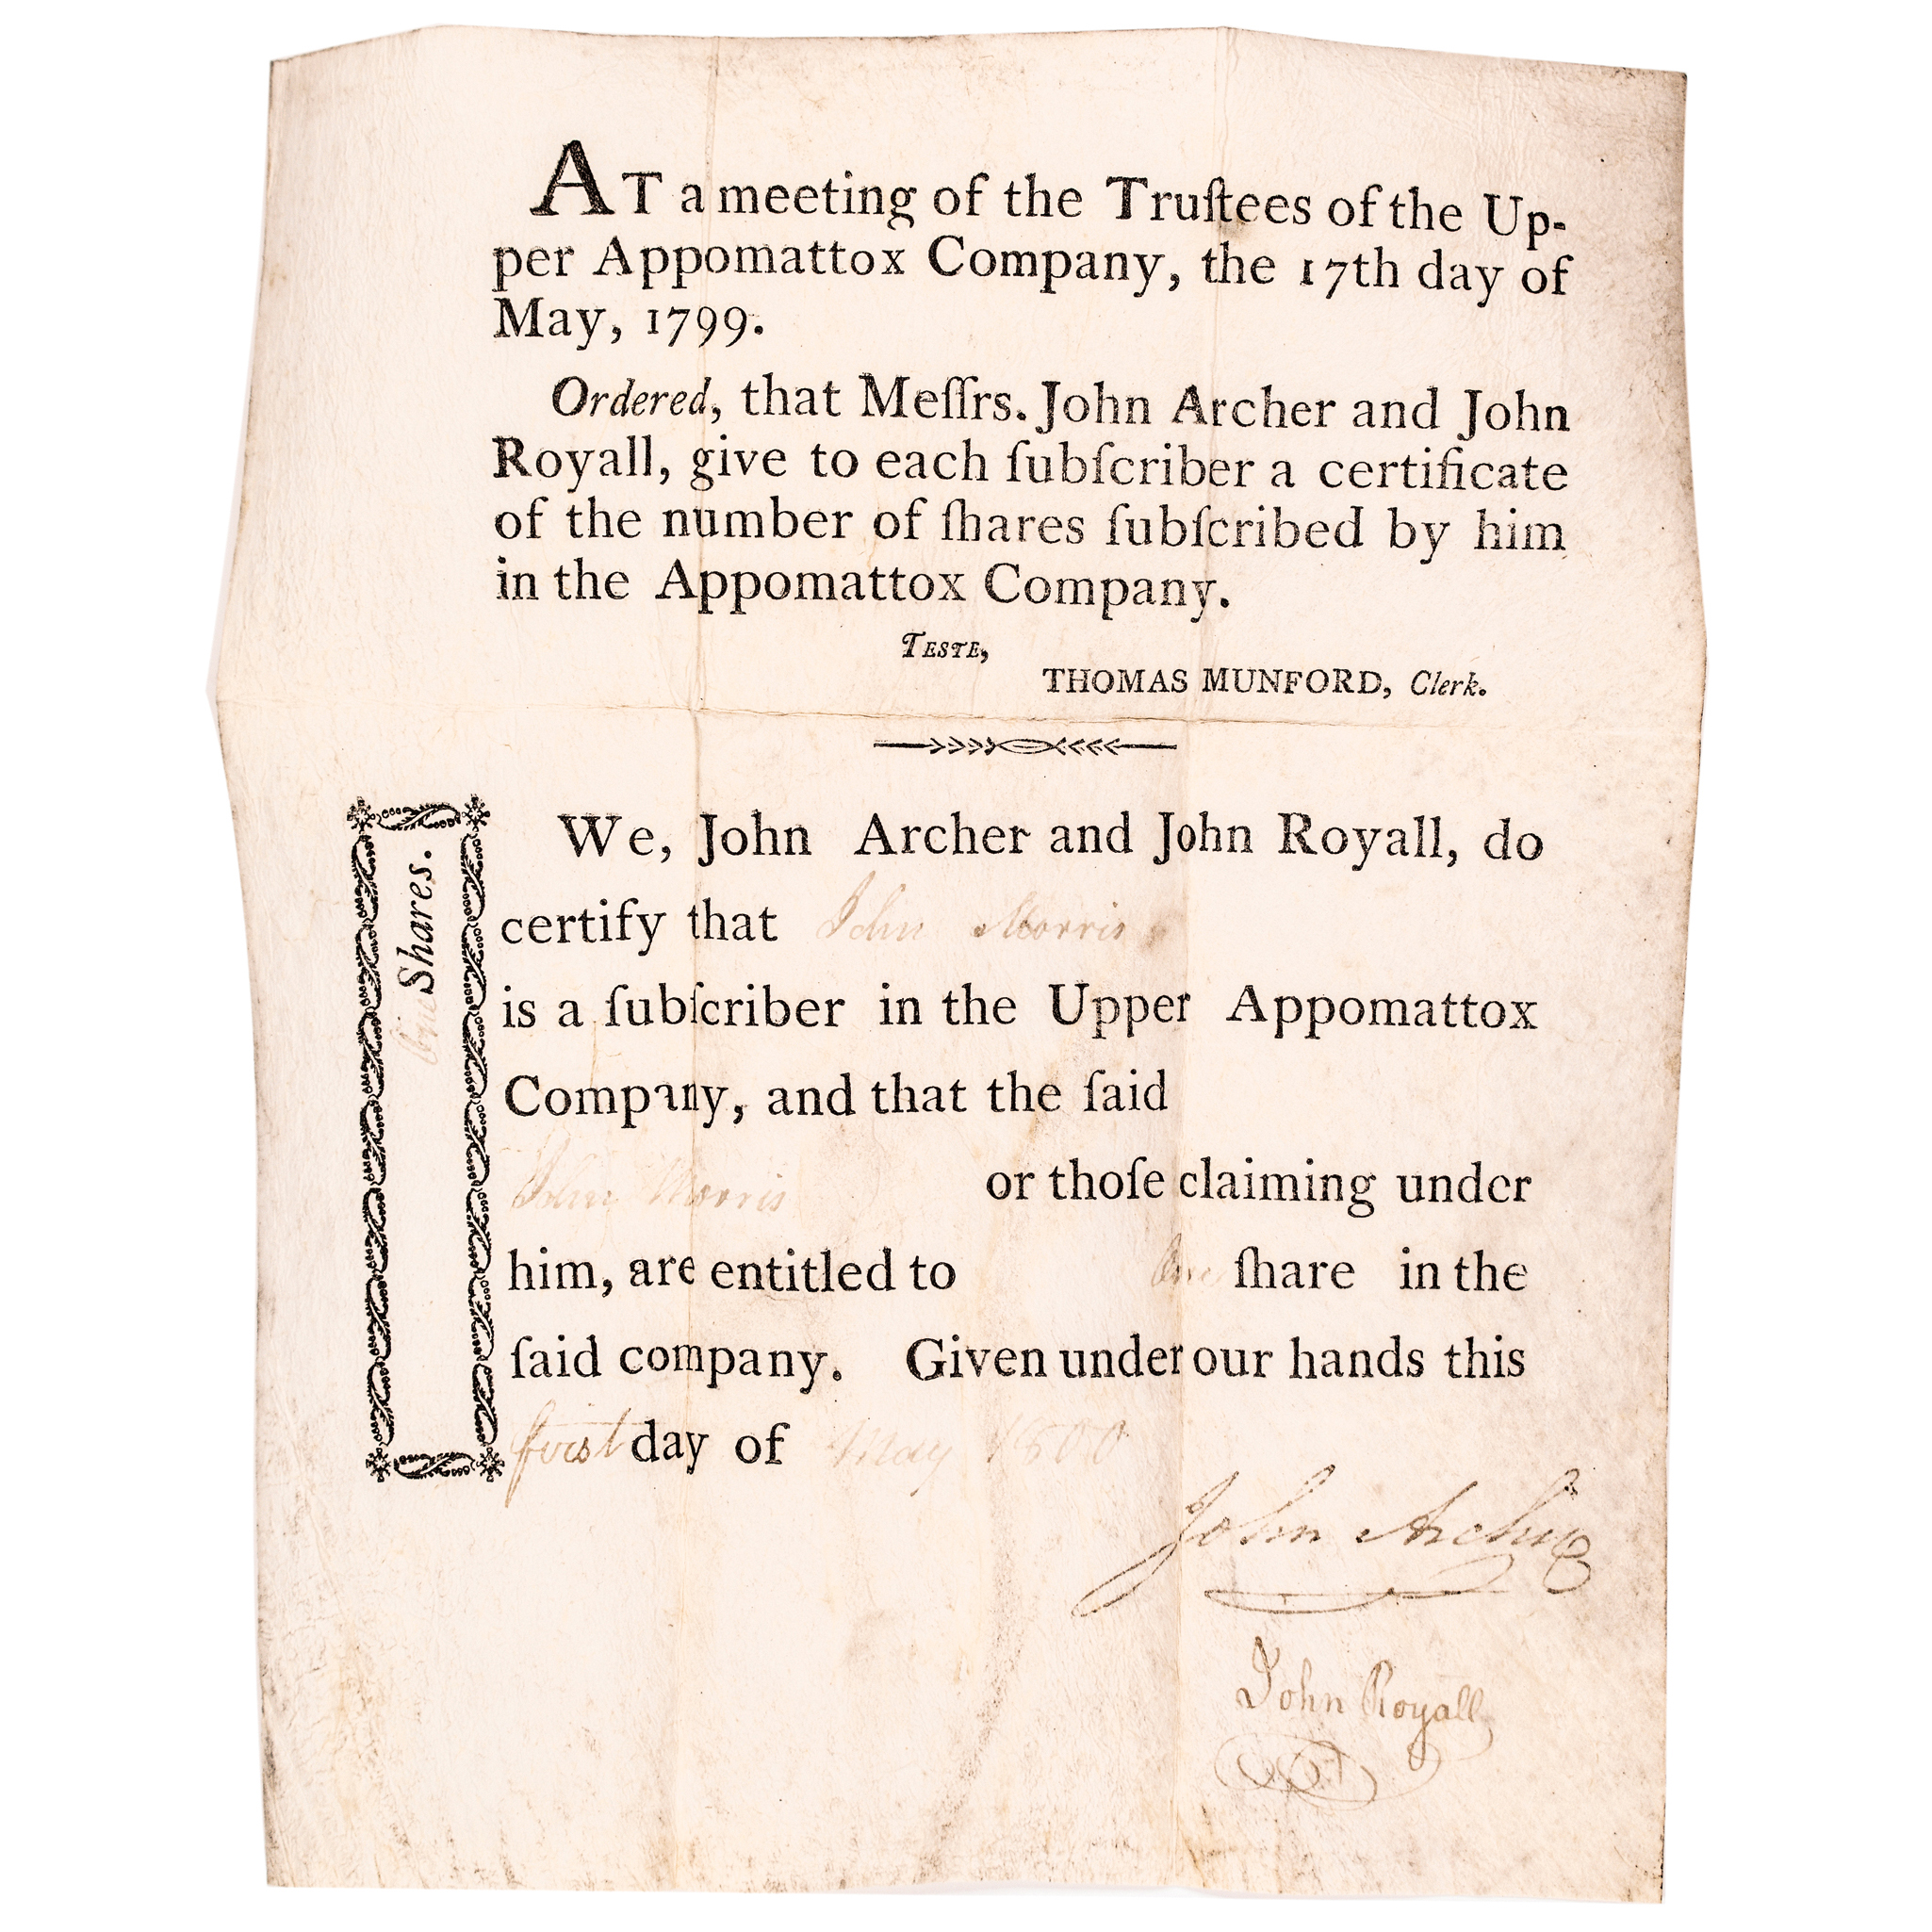 AT a meeting of the Truſtees of the Up-
per Appomattox Company, the 17th day of
May, 1799.
Ordered, that Meſſrs. John Archer and John
Royall, give to each ſubſcriber a certificate
of the number of ſhares ſubſcribed by him
in the Appomattox Company.
TESTE,
THOMAS MUNFORD, Clerk.
One Shares.
We, John Archer and John Royall, do
certify that John Morris
is a ſubſcriber in the Upper Appomattox
Company, and that the ſaid
John Morris or thoſe claiming under
him, are entitled to One ſhare in the
ſaid company. Given under our hands this
first day of May 1800
John Archer
John Royall